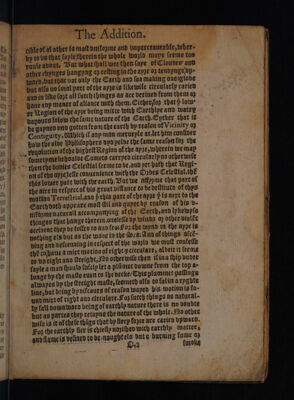 The Addition.
cible of al other so most vnisorme and vnperceaueable, wher-
by to vs that sayle therein the whole world maye seeme too
roule about. But what shall we then saye of Clowdes and
other thynges hangyng or resting in the ayre or tendynge vp-
ward, but that not only the Earth and Sea making one globe
but also no small part of the ayre is likewise circularly caried
and in like sort all such thinges as are deriued from them or
haue any maner of aliance with them. Either for that the low-
er Region of the ayre being mixte with Earthlye and watry
vapours folow the same nature of the Earth. Eyther that it
be gayned and gotten from the earth by reason of Vicinity or
Contiguity. Which if any man meruayle at, let him consider
how the olde Philosophers did yelde the same reason for the
reuolution of the highest Region of the ayre, wherein we may
sometyme behold Comets carryed circularly no otherwise
then the bodies Celestial seeme to be, and yet hath that Regi-
on of the ayre lesse conuenience with the Orbes Celestial, thẽ
this lower part with the earth. But we affyrme that part of
the aire in respect of his great distance to be destitute of thys
motion Terrestrial, and that this part of the ayre that is next to the
Earth doth appeare most still and quyet by reason of hys v-
niforme naturall accompanying of the Earth, and lykewyse
thinges that hange therein, onelesse by windes or other violẽt
accident they be tossed to and fro. For the wynde in the ayre is
nothing els but as the waue in the Sea: And of things ascẽ-
ding and descending in respect of the world we must confesse
thẽ to haue a mixt motion of right & circulare, albeit it seeme
to vs right and streight, No otherwise then if in a ship vnder
sayle a man should softly let a plummet downe from the top a-
longe by the maste euen to the decke: This plummet passing
alwayes by the streight maste, seemeth also to fal in a ryght
line, but being by discours of reason wayed his motion is fo-
und mixt of right and circulare. For such things as natural-
ly fall downward being of earthly nature there is no doubte
but as partes they retayne the nature of the whole. No other
wise is it of these things that by fiery force are caried vpward.
For the earthly fier is chiefly norished with earthly matter,
and flame is defined to be naughte els but a burning fume or
smoke